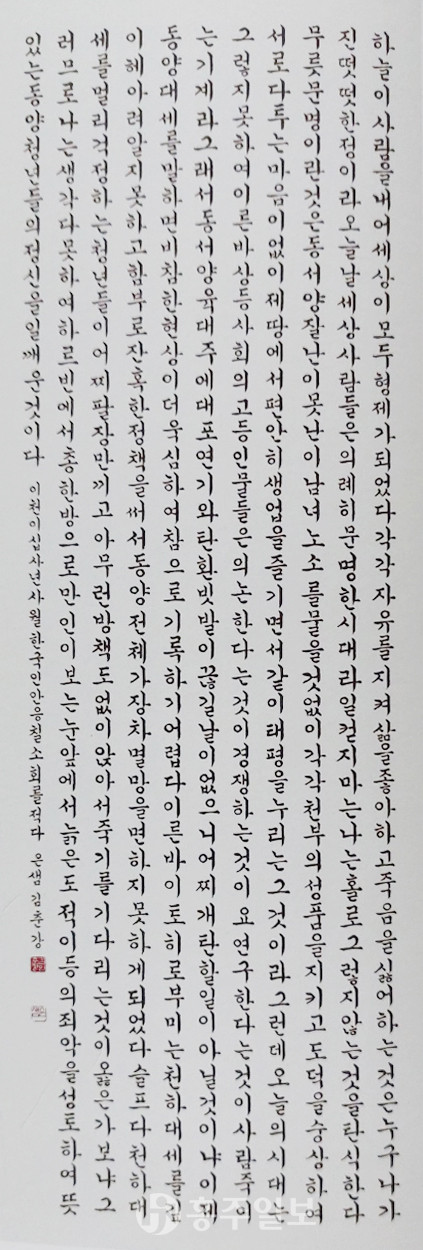 하늘이사람을내어세상이모두형제가되었다각각자유를지켜삶을좋아하고죽음을싫어하는것은누구나가
진떳떳한정이라오늘날세상사람들은의례히문명한시대라일컫지마는나는홀로그렇지않는것을탄식한다
무릇문명이란것은동서양잘난이못난이남녀노소를물을것없이각각천부의성품을지키고도덕을숭상하여
서로다투는마음이없이제땅에서편안히생업을즐기면서같이태평을누리는그것이라그런데오늘의시대는
그렇지못하여이른바상등사회의고등인물들은의논한다는것이경쟁하는것이요연구한다는것이사람죽이
는기계라그래서동서양육대주에대포연기와탄환빗발이끊길날이없으니어찌개탄할일이아닐것이냐이제
동양대세를말하면비참한현상이더욱심하여참으로기록하기어렵다이른바이토히로부미는천하대세를깊
이헤아려알지못하고함부로잔혹한정책을써서동양전체가장차멸망을면하지못하게되었다슬프다천하대
세를멀리걱정하는청년들이어찌팔장만끼고아무런방책도없이앉아서죽기를기다리는것이옳은가보냐그
러므로나는생각다못하여하르빈에서총한방으로만인이보는눈앞에서늙은도적이등의죄악을성토하여뜻
있는동양청년들의정신을일깨운것이다 이천이십사년사월한국인안응칠소회를적다 은샘 김춘강
홍주일보